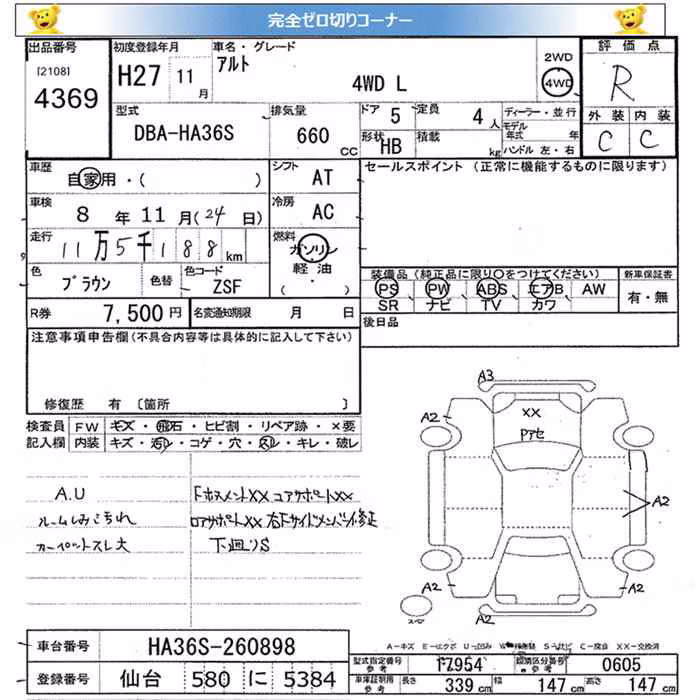 完全ゼロ切りコーナー
出品番号 [2108] 4369
初度登録年月 H27 11月
車名・グレード アルト 4WD L
2WD 4WD
評価点 R
外装 内装
C C
型式 DBA-HA36S
排気量 660 CC
ドア 5 定員 4人
形状 HB 積載 kg
ディーラー・並行
モデル年式 年
ハンドル 左・右
車歴 自家用・( )
シフト AT
セールスポイント (正常に機能するものに限ります)
車検 8年 11月 (24日)
冷房 AC
走行 11万5千188km
燃料 ガソリン 軽油 ( ・ )
色 ブラウン 色替 色コード ZSF
装備品(純正品に限り〇をつけてください) 新車保証書
PS PW ABS エアB AW 有・無
SR ナビ TV カワ
R券 7,500円 名変通知期限 月 日
後日品
注意事項申告欄(不具合内容等は具体的に記入して下さい)
修復歴 有 〔箇所 〕
検査員 FW キズ・飛石・ヒビ割・リペア跡・×要
記入欄 内装 キズ・汚レ・コゲ・穴・スレ・キレ・破レ
A.U
ルームしみこられ
カーペットスレ大
下廻りS
A3
A2
A2
XX
Pアセ
A2
A2
A2
車台番号 HA36S-260898
登録番号 仙台 580 に 5384
型式指定番号 参考 17954 類別区分番号 参考 0605
車庫証明用 参考 長さ 339cm 幅 147cm 高さ 147cm